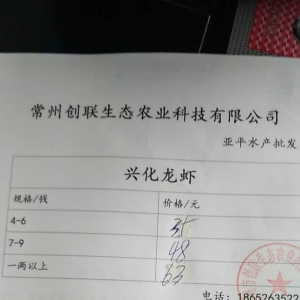 常州创联生态农业科技有限公司
亚平水产批发
兴化龙虾
规格/钱 价格/元
4-6 35
7-9 48
一两以上 63
电话：1865263522